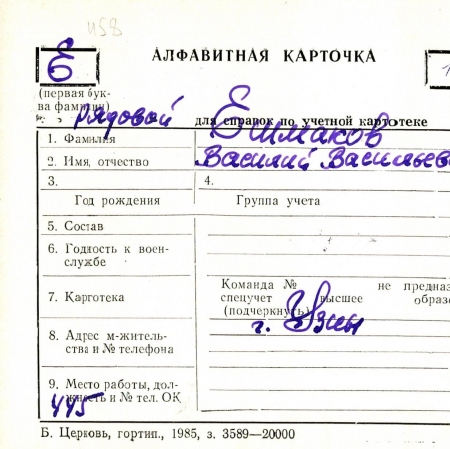 458
АЛФАВИТНАЯ КАРТОЧКА
Е
(первая бук-
ва фамилии)
рядовой
для справок по учетной картотеке
1. Фамилия
Ешмаков
2. Имя, отчество
Василий Васильев
3.
4.
Год рождения
Группа учета
5. Состав
6. Годность к воен-
службе
Команда № не предназ
7. Картотека
спецучет высшее образо
(подчеркнуть)
г.
8. Адрес м-житель-
ства и № телефона
9. Место работы, дол-
жность и № тел. ОК
445
Б. Церковь, гортип., 1985, з. 3589—20000